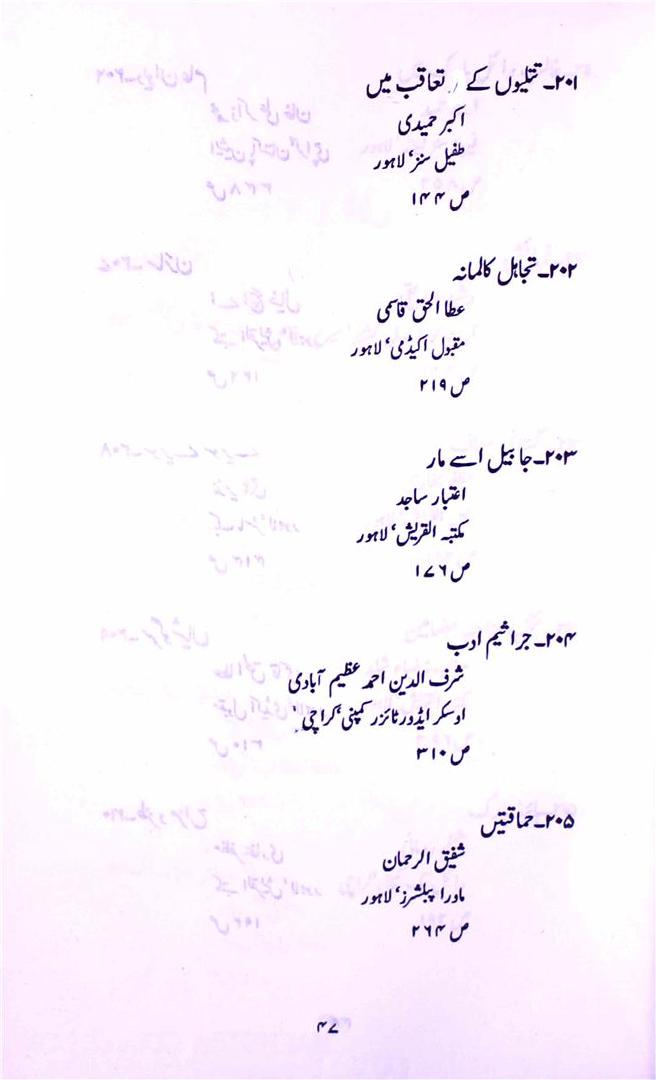 ۲۰۱۔ تتلیوں کے تعاقب میں
اکبر حمیدی
طفیل سنز، لاہور
ص ۱۴۴
۲۰۲۔ تجاہل کالمانہ
عطا الحق قاسمی
مقبول اکیڈمی، لاہور
ص ۲۱۹
۲۰۳۔ جا بیل اسے مار
اعتبار ساجد
مکتبہ القریش، لاہور
ص ۱۷۶
۲۰۴۔ جراثیم ادب
شرف الدین احمد عظیم آبادی
اوسکر ایڈورٹائزر کمپنی، کراچی
ص ۳۱۰
۲۰۵۔ حماقتیں
شفیق الرحمان
ماورا پبلشرز، لاہور
ص ۲۶۴
۴۷